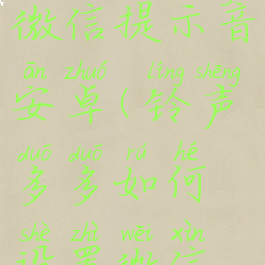 微信提示音
ān zhuó  líng shēng
安卓(铃声
duō duō rú hé
多多如何
shè zhì wēi xìn
设置微信